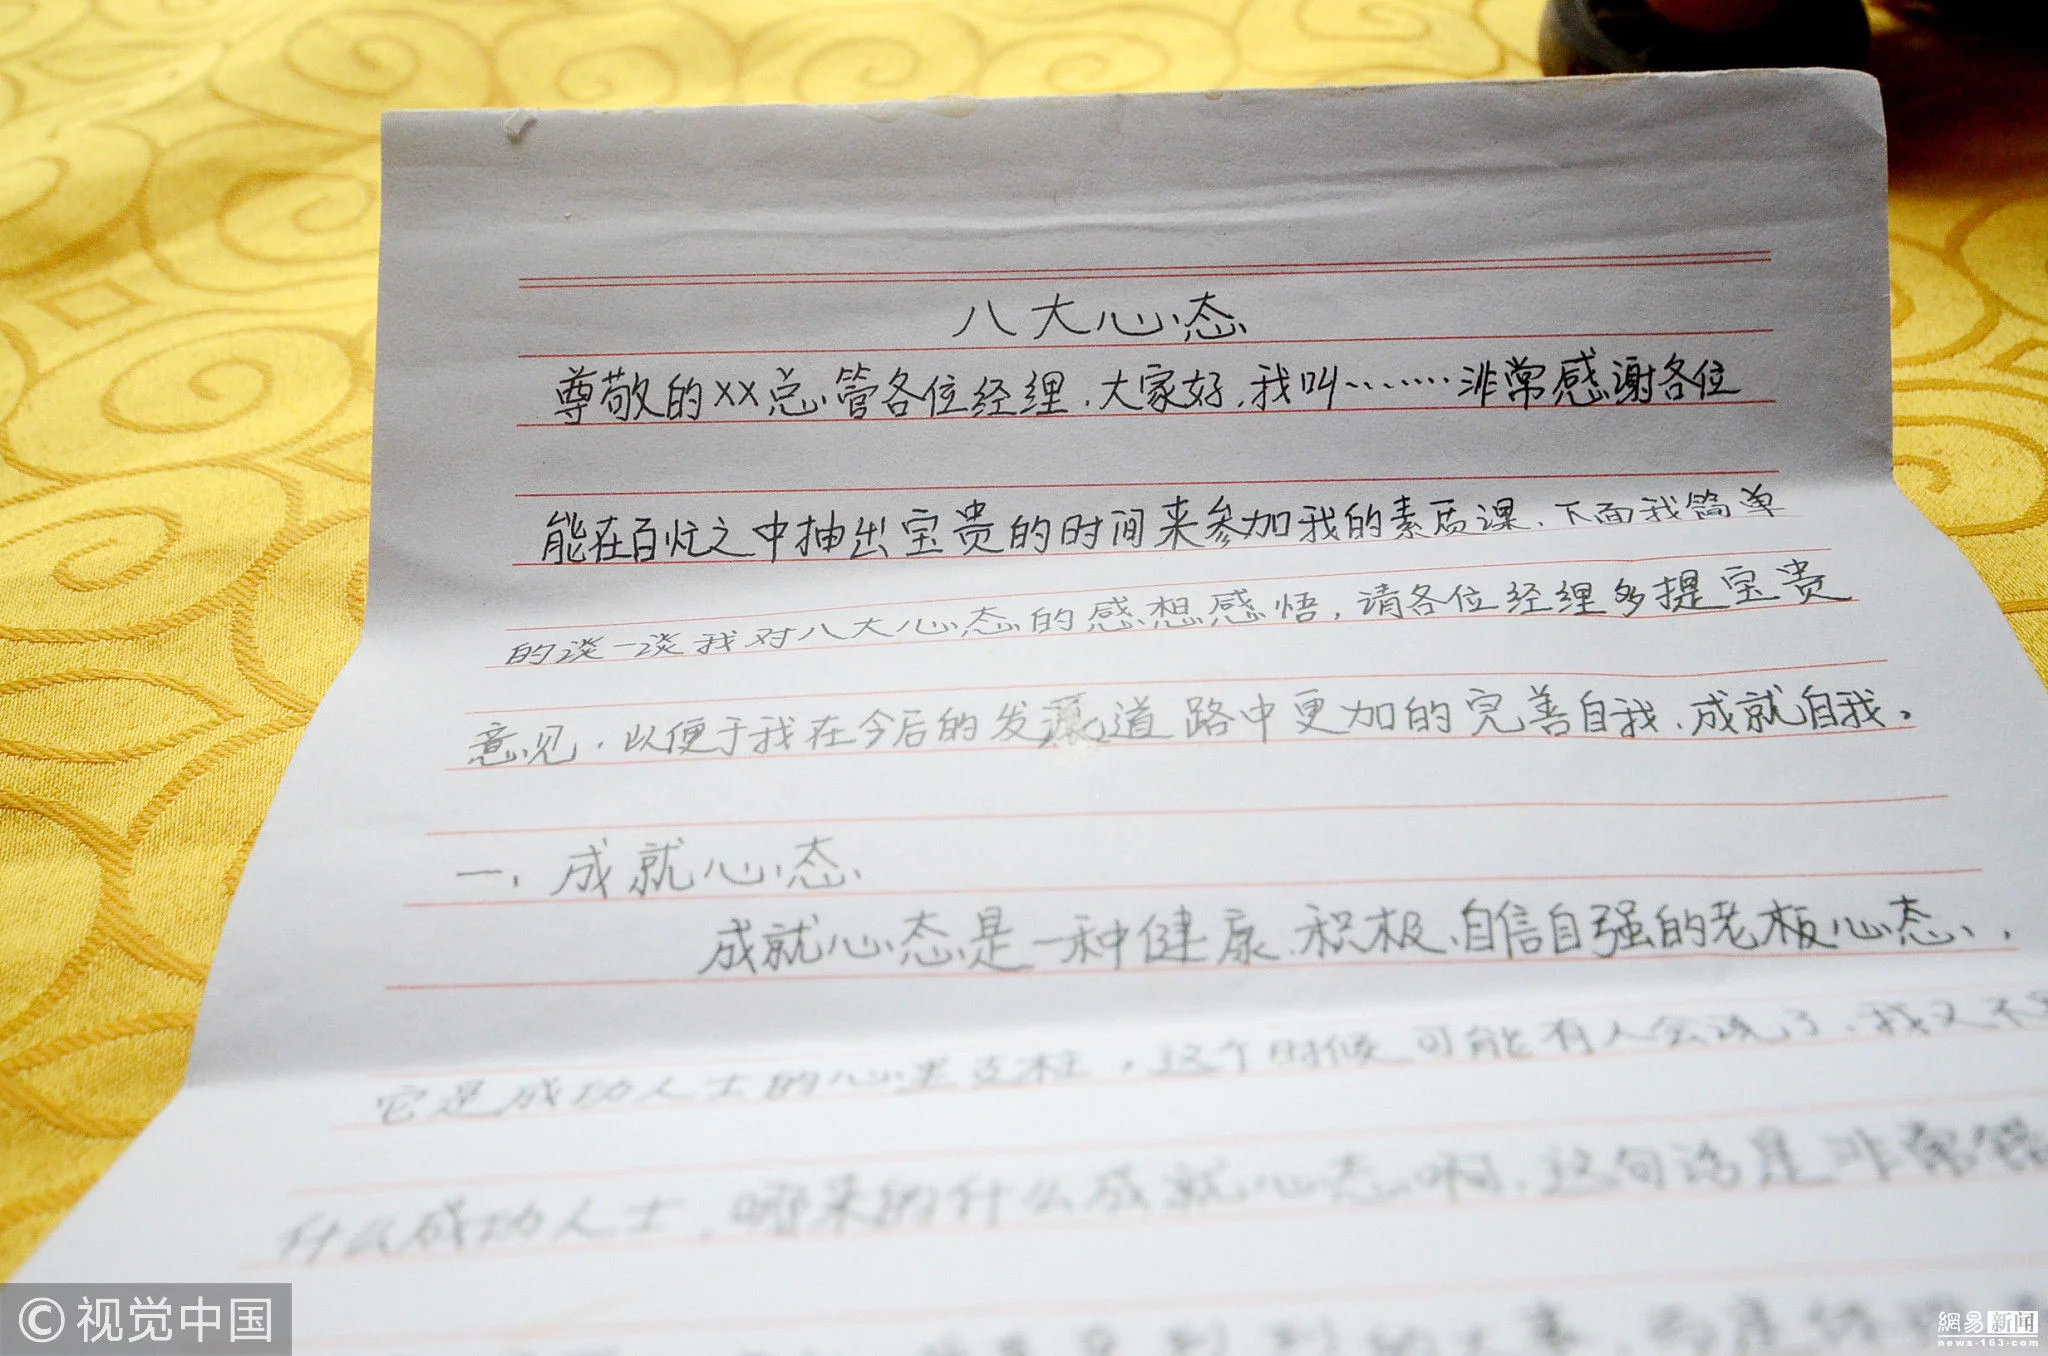 八大心态
尊敬的××总管各位经理，大家好，我叫……非常感谢各位
能在百忙之中抽出宝贵的时间来参加我的素质课，下面我简单
的谈一谈我对八大心态的感想感悟，请各位经理多提宝贵
意见，以便于我在今后的发展道路中更加的完善自我，成就自我。
一、成就心态
成就心态是一种健康、积极、自信自强的老板心态，
它是成功人士的心里支柱，这个时候可能有人会说了，我又不
什么成功人士，哪来的什么成就心态啊，这句话是非常错
© 视觉中国
網易新闻
news·163·com